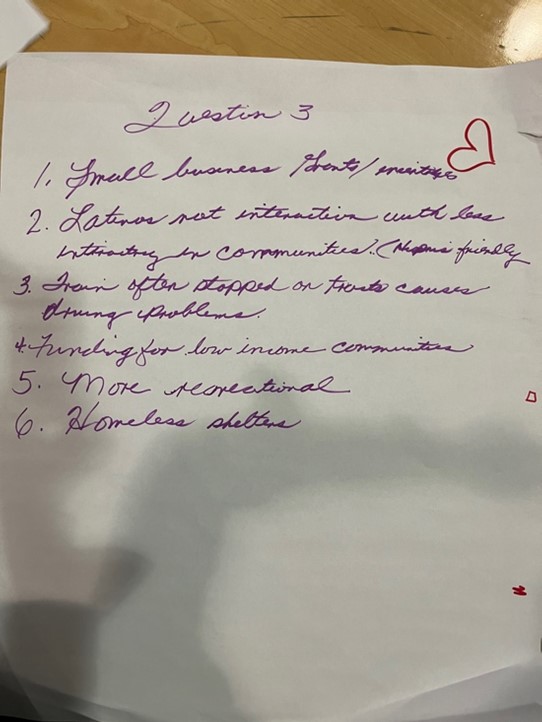 Question 3
1. Small business Grants/
2. Latinos not interaction with less
in communities. ( friendly
3. Train often stopped on causes
driving problems.
4. Funding for low income communities
5. More recreational
6. Homeless shelters